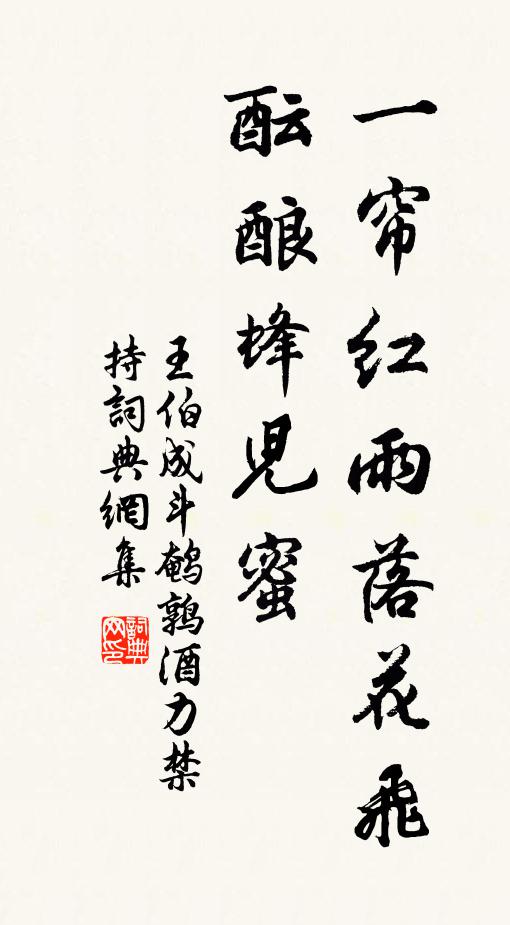 一帘红雨落花飛
酝酿蜂児蜜
王伯成斗鹌鹑酒力禁
持詞典網集
詞典网印